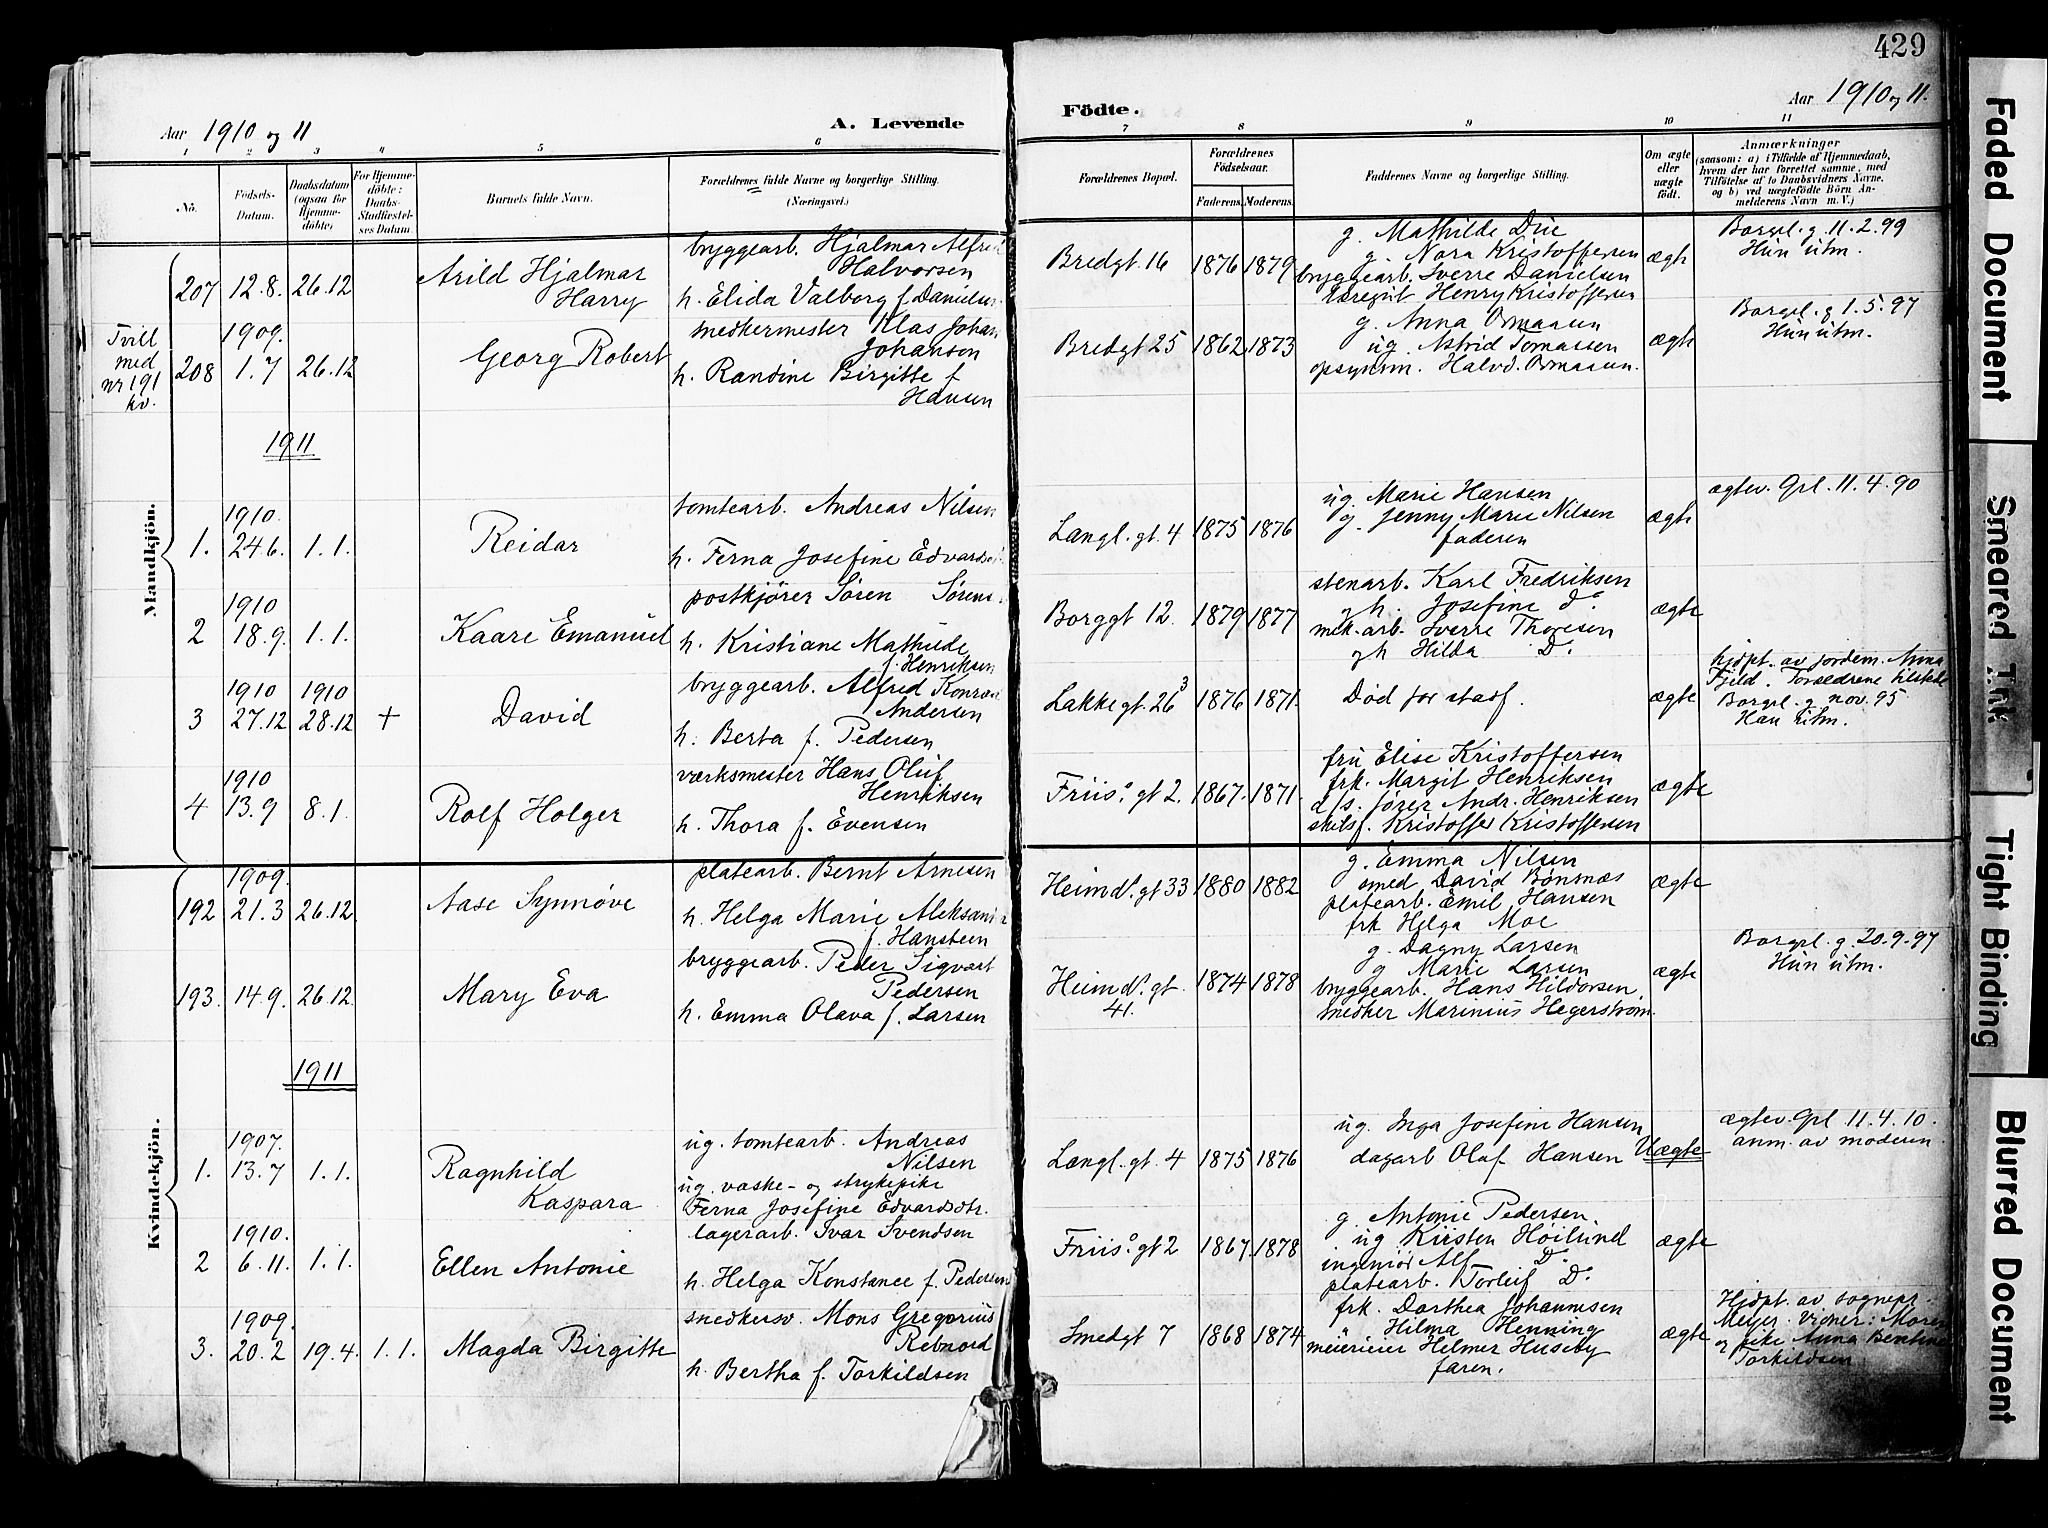 429
Aar 1910 og 11
A. Levende
Födte.
Aar 1910 og 11.
1 2 3 4 5 6 7 8 9 10 11
No.
Födsels-Datum.
Daabsdatum (ogsaa for Hjemme-döbte)
For Hjemme-döbte: Daabs-Stadfæstel-ses Datum.
Barnets fulde Navn.
Forældrenes fulde Navne og borgerlige Stilling.
(Næringsvei.)
Forældrenes Bopæl.
Forældrenes Födselsaar.
Faderens. Moderens.
Faddernes Navne og borgerlige Stilling.
Om ægte eller uægte födt.
Anmærkninger
(saasom: a) i Tilfælde af Hjemmedaab, hvem der har forrettet samme, med Tilföielse af to Daabsvidners Navne, og b) ved uægtefödte Börn Anmelderens Navn m. V.)
Mandkjön.
207 12.8. 26.12
Arild Hjalmar
Harry
bryggearb. Hjalmar Alfred
Halvorsen
h. Elida Valborg f. Daniels
Bredgt. 16 1876 1879
g. Mathilde Due
g. Nora Kristoffersen
bryggearb. Sverre Danielsen
Henry Kristoffersen
ægte
Borgel. g. 11.2.99
Hun utm.
Tvill
med
nr 191
kv.
208 1909. 1.7 26.12
Georg Robert
snedkermester Klas Johan
Johanson
h. Randine Birgitte f
Hansen
Bredgt 25 1862 1873
g. Anna Ormaasen
ug. Astrid Tomassen
opsynsm. Halvd. Ormaasen.
ægte
Borgel. g 1.5.97
Hun utm.
1911
1. 1910. 24.6. 1.1.
Reidar
tomtearb. Andreas Nilsen
h. Ferna Josefine Edvards
Langl. gt. 4 1875 1876
ug. Marie Hansen
g. Jenny Marie Nilsen
faderen
ægte
ægtev. Grl. 11.4.90
2 1910 18.9. 1.1.
Kaare Emanuel
postkjører Søren Sørens
h. Kristiane Mathilde
f. Henriksen
Borggt 12. 1879 1877
stenarb. Karl Fredriksen
gh. Josefine do.
mek.arb. Sverre Thoresen
gh Hilda Do.
ægte
3 1910 27.12 1910 28.12 +
David
bryggearb. Alfred Konrad
Andersen
h. Berta f. Pedersen
Lakkegt. 26 3 1876 1871.
Død før stadf.
ægte
hjdpt. av jordem. Anna
Fjeld. Forældrene tilstede
Borgel. g nov. 95
Han utm.
4 1910 13.9 8.1.
Rolf Holger
værksmester Hans Oluf
Henriksen
h. Thora f. Evensen
Friis. gt 2. 1867. 1871.
fru Elise Kristoffersen
frk. Margit Henriksen
d/s. fører Andr. Henriksen
skibsf. Kristoffer Kristoffersen
ægte
Kvindekjön.
192 1909. 21.3 26.12
Aase Synnøve
platearb. Bernt Arnesen
h. Helga Marie Aleksand
f. Hansteen
Heimd. gt 33 1880 1882
g. Emma Nilsen
smed David Bønsnæs
platearb. Emil Hansen
frk Helga Moe
ægte
193. 14.9. 26.12.
Mary Eva
bryggearb. Peder Sigvart
Pedersen
h. Emma Olava f. Larsen
Heimd. gt.
41.
1874 1878
g. Dagny Larsen
g Marie Larsen
bryggearb. Hans Hildorsen.
snedker Marinius Hegerstrøm.
ægte
Borgel. g. 20.9.97
Hun utm.
1911
1. 1907. 13.7 1.1.
Ragnhild
Kaspara
ug. tomtearb. Andreas
Nilsen
ug. vaske- og strykepike
Ferna Josefine Edvardsdtr.
Langl. gt. 4 1875 1876
ug. Inga Josefine Hansen
dagarb Olaf Hansen
Uægte
ægtev. Grl 11.4.10.
anm. av moderen
2 1910. 6.11. 1.1.
Ellen Antonie
lagerarb. Ivar Svendsen
h. Helga Konstance f. Pedersen
Friis. gt 2 1867. 1878
g. Antonie Pedersen.
ug Kirsten Høilund
ingeniør Alf Do.
platearb. Torleif Do.
ægte
3. 1909. 20.2 19.4. 1.1.
Magda Birgitte
snedkersv. Mons Gregorius
Rebnord
h. Bertha f. Torkildsen
Smedgt 7 1868 1874
frk. Dorthea Johannesen
" Hilma Henning
meierieier Helmer Huseby
faren.
ægte
Hjdpt. av sognepr.
Meyer. vidner: Moren
og pike Anna Bentine
Torkildsen
Faded Document
Smeared Ink
Tight Binding
Blurred Document